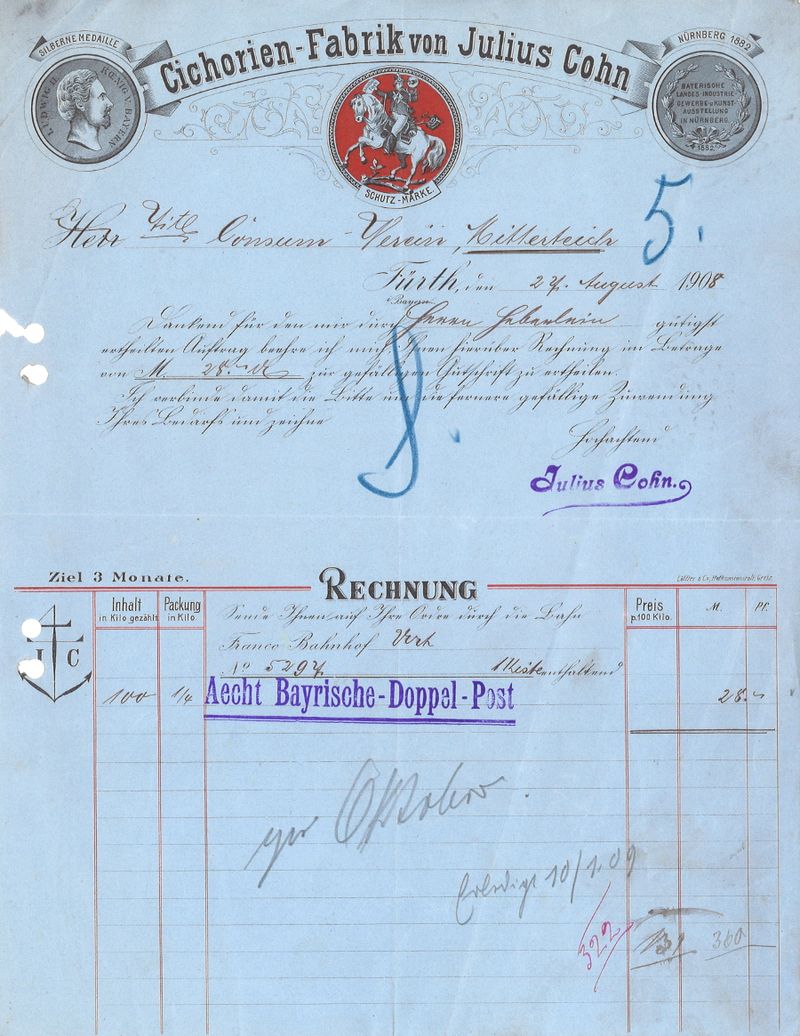 Cichorien-Fabrik von Julius Cohn
SILBERNE MEDAILLE
LUDWIG II KOENIG V. BAYERN
NÜRNBERG 1882
BAYERISCHE
LANDES-INDUSTRIE
GEWERBE u KUNST
AUSSTELLUNG
IN NÜRNBERG
1882
SCHUTZ-MARKE
5.
Herr Titl Consum-Verein, Mitterteich
Fürth, den 27. August 1908
Bayern
Dankend für den mir durch Herrn Heberlein gütigst
ertheilten Auftrag beehre ich mich, Ihnen hierüber Rechnung im Betrage
von M. 28. zur gefälligen Gutschrift zu ertheilen.
Ich verbinde damit die Bitte um die fernere gefällige Zuwendung
Ihres Bedarfs und zeichne
Hochachtend
Julius Cohn.
8.
Ziel 3 Monate.
RECHNUNG
Inhalt in Kilo gezählt
Packung in Kilo.
Sende Ihnen auf Ihre Ordre durch die Bahn
Preis p. 100 Kilo.
M.
Pf.
J C
Franco Bahnhof
No 5297. 1 Kiste enthaltend
100 1/4 Aecht Bayrische-Doppel-Post 28.-
per Oktober.
Erledigt 10/1.09
322
360